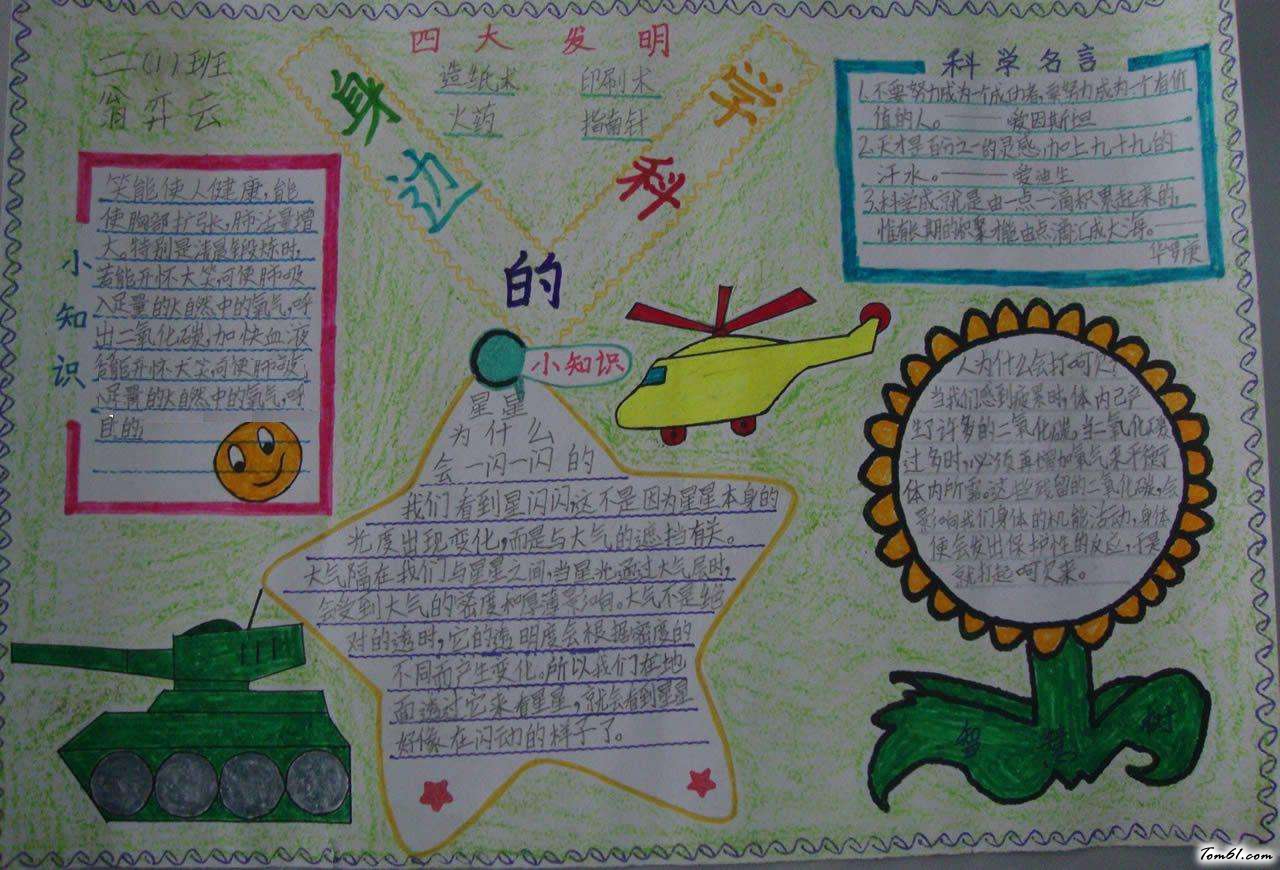 二(1)班
翁弈云
四大发明
造纸术 印刷术
火药 指南针
身边的科学
科学名言
1.不要努力成为一个成功者,要努力成为一个有价
值的人。——爱因斯坦
2.天才是百分之一的灵感,加上九十九的
汗水。——爱迪生
3.科学成就是由一点一滴积累起来的,
惟有长期的积累才能由点滴汇成大海。——
华罗庚
小知识
笑能使人健康,能
使胸部扩张,肺活量增
大。特别是清晨锻炼时,
若能开怀大笑,可使肺吸
入足量的大自然中的氧气,呼
出二氧化碳,加快血液
若能开怀大笑,可使肺吸
入足量的大自然中的氧气,呼
目的;
小知识
星星
为什么
会一闪一闪的
我们看到星闪闪,这不是因为星星本身的
光度出现变化,而是与大气的遮挡有关。
大气隔在我们与星星之间,当星光通过大气层时,
会受到大气的密度和厚薄影响。大气不是绝
对的透时,它的透明度会根据密度的
不同而产生变化。所以我们在地
面透过它来看星星,就会看到星星
好像在闪动的样子了。
人为什么会打呵欠?
当我们感到疲累时,体内已产
生了许多的二氧化碳,当二氧化碳
过多时,必须再增加氧气来平衡
体内所需。这些残留的二氧化碳,会
影响我们身体的机能活动,身体
便会发出保护性的反应,于是
就打起呵欠来。
智慧树
Tom61.com